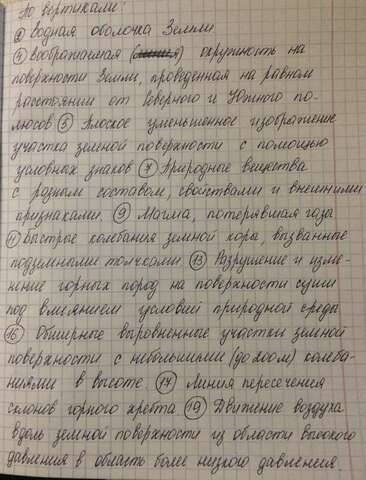 По вертикали:
② Водная оболочка Земли
④ Воображаемая (линия) окружность на
поверхности Земли, проведенная на равном
расстоянии от Северного и Южного по-
люсов ⑤ Плоское уменьшенное изображение
участка земной поверхности с помощью
условных знаков ⑦ Природные вещества
с разным составом, свойствами и внешними
признаками. ⑨ Магма, потерявшая газы
11 Быстрые колебания земной коры, вызванные
подземными толчками ⑬ Разрушение и изме-
нение горных пород на поверхности суши
под влиянием условий природной среды.
⑯ Обширные выровненные участки земной
поверхности с небольшими (до 200м) колеба-
ниями в высоте. ⑰ Линия пересечения
склонов горного хребта. ⑲ Движение воздуха
вдоль земной поверхности из области высокого
давления в область более низкого давления.